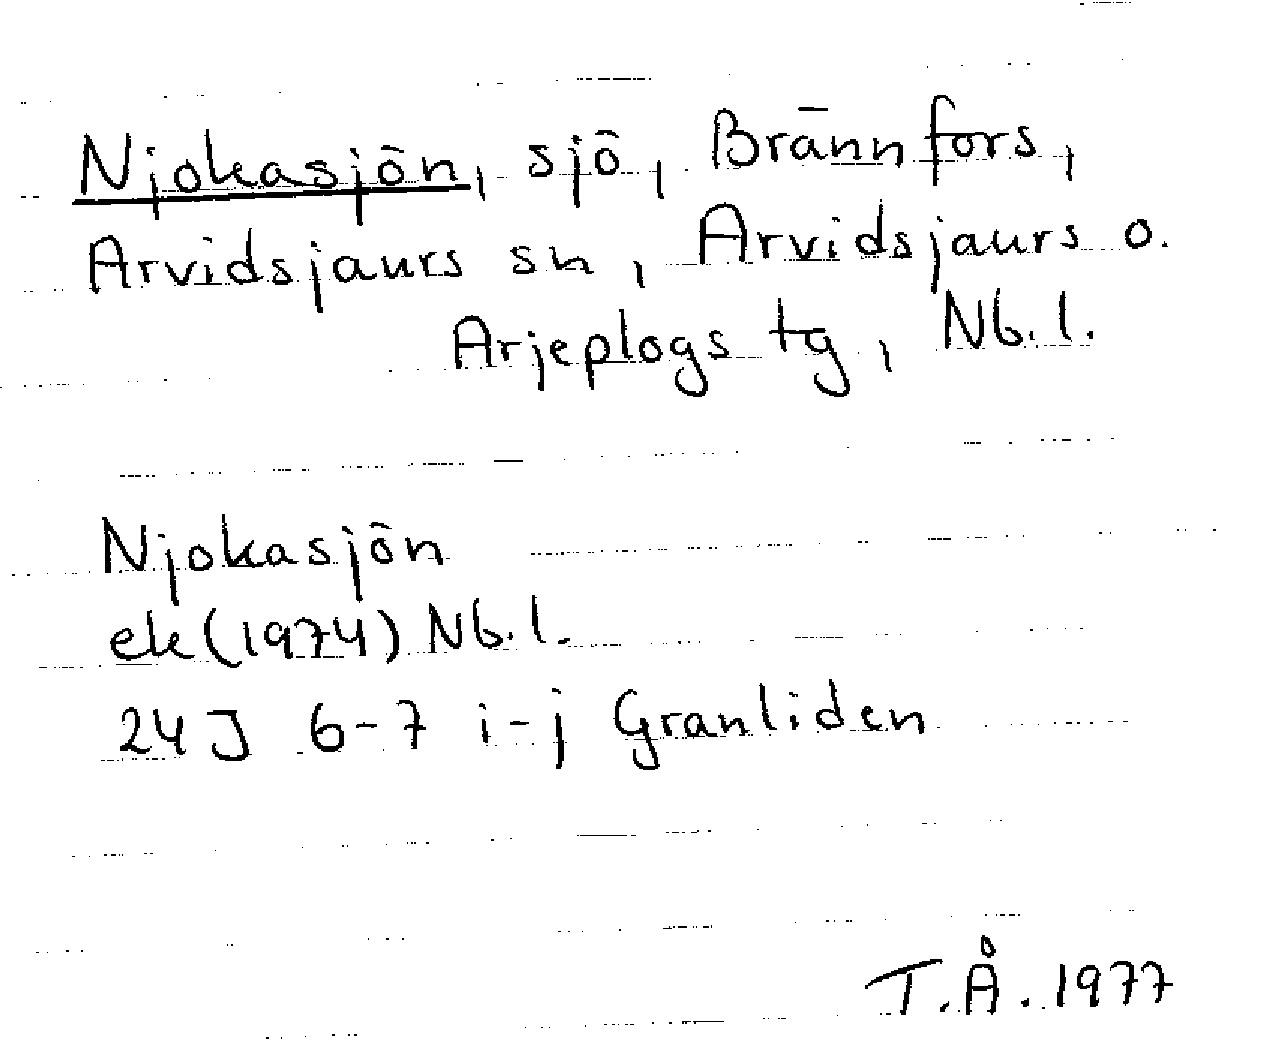 Njokasjön, sjö, Brännfors,
Arvidsjaurs sn, Arvidsjaurs o.
Arjeplogs tg, Nb. l.
Njokasjön
ek (1974) Nb. l.
24 J 6-7 i-j Granliden
T.Å. 1977